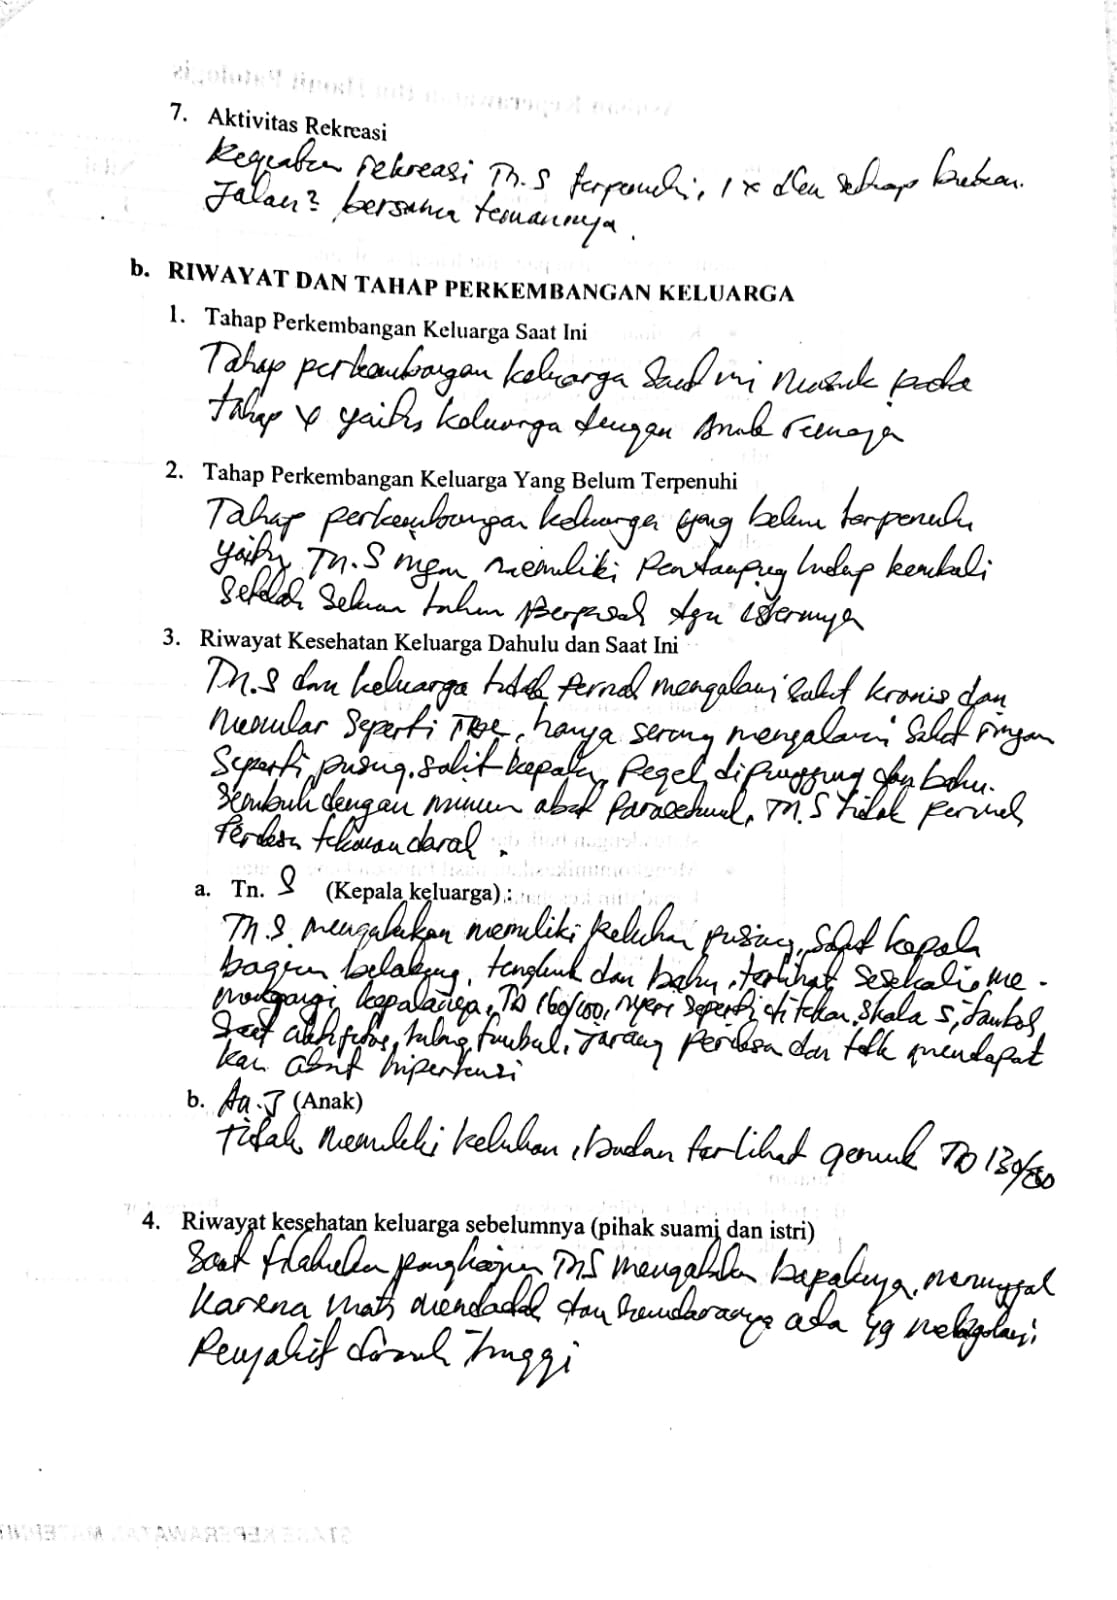 7. Aktivitas Rekreasi
Kegiatan rekreasi Tn. S terpenuhi, 1x dlm setiap bulan.
Jalan2 bersama temannya.
b. RIWAYAT DAN TAHAP PERKEMBANGAN KELUARGA
1. Tahap Perkembangan Keluarga Saat Ini
Tahap perkembangan keluarga saat ini masuk pada
tahap V yaitu keluarga dengan Anak remaja
2. Tahap Perkembangan Keluarga Yang Belum Terpenuhi
Tahap perkembangan keluarga yang belum terpenuhi
yaitu Tn. S memiliki hidup kembali
Setelah sekian tahun Berpisah dgn isterinya
3. Riwayat Kesehatan Keluarga Dahulu dan Saat Ini
Tn. S dan keluarga tidak pernah mengalami sakit kronis dan
menular seperti TBC, hanya sering mengalami sakit ringan
Seperti pusing, sakit kepala, pegel dipunggung dan bahu.
Sembuh dengan minum obat Paracetamol, Tn. S tidak pernah
Periksa tekanan darah.
a. Tn. S (Kepala keluarga) :
Tn. S mengatakan memiliki keluhan pusing, sakit kepala
bagian belakang, tengkuk dan bahu, terlihat sesekali me-
megangi kepalanya, TD 160/100, nyeri seperti ditekan, skala 5, timbul
Saat aktifitas, hilang timbul, jarang periksa dan tdk mendapat
kan obat hipertensi
b. An. J (Anak)
Tidak memiliki keluhan, badan terlihat gemuk TD 130/80
4. Riwayat kesehatan keluarga sebelumnya (pihak suami dan istri)
Saat dilakukan pengkajian Tn S mengatakan bapaknya meninggal
karena mati mendadak dan saudaranya ada yg mengalami
Penyakit darah Tinggi